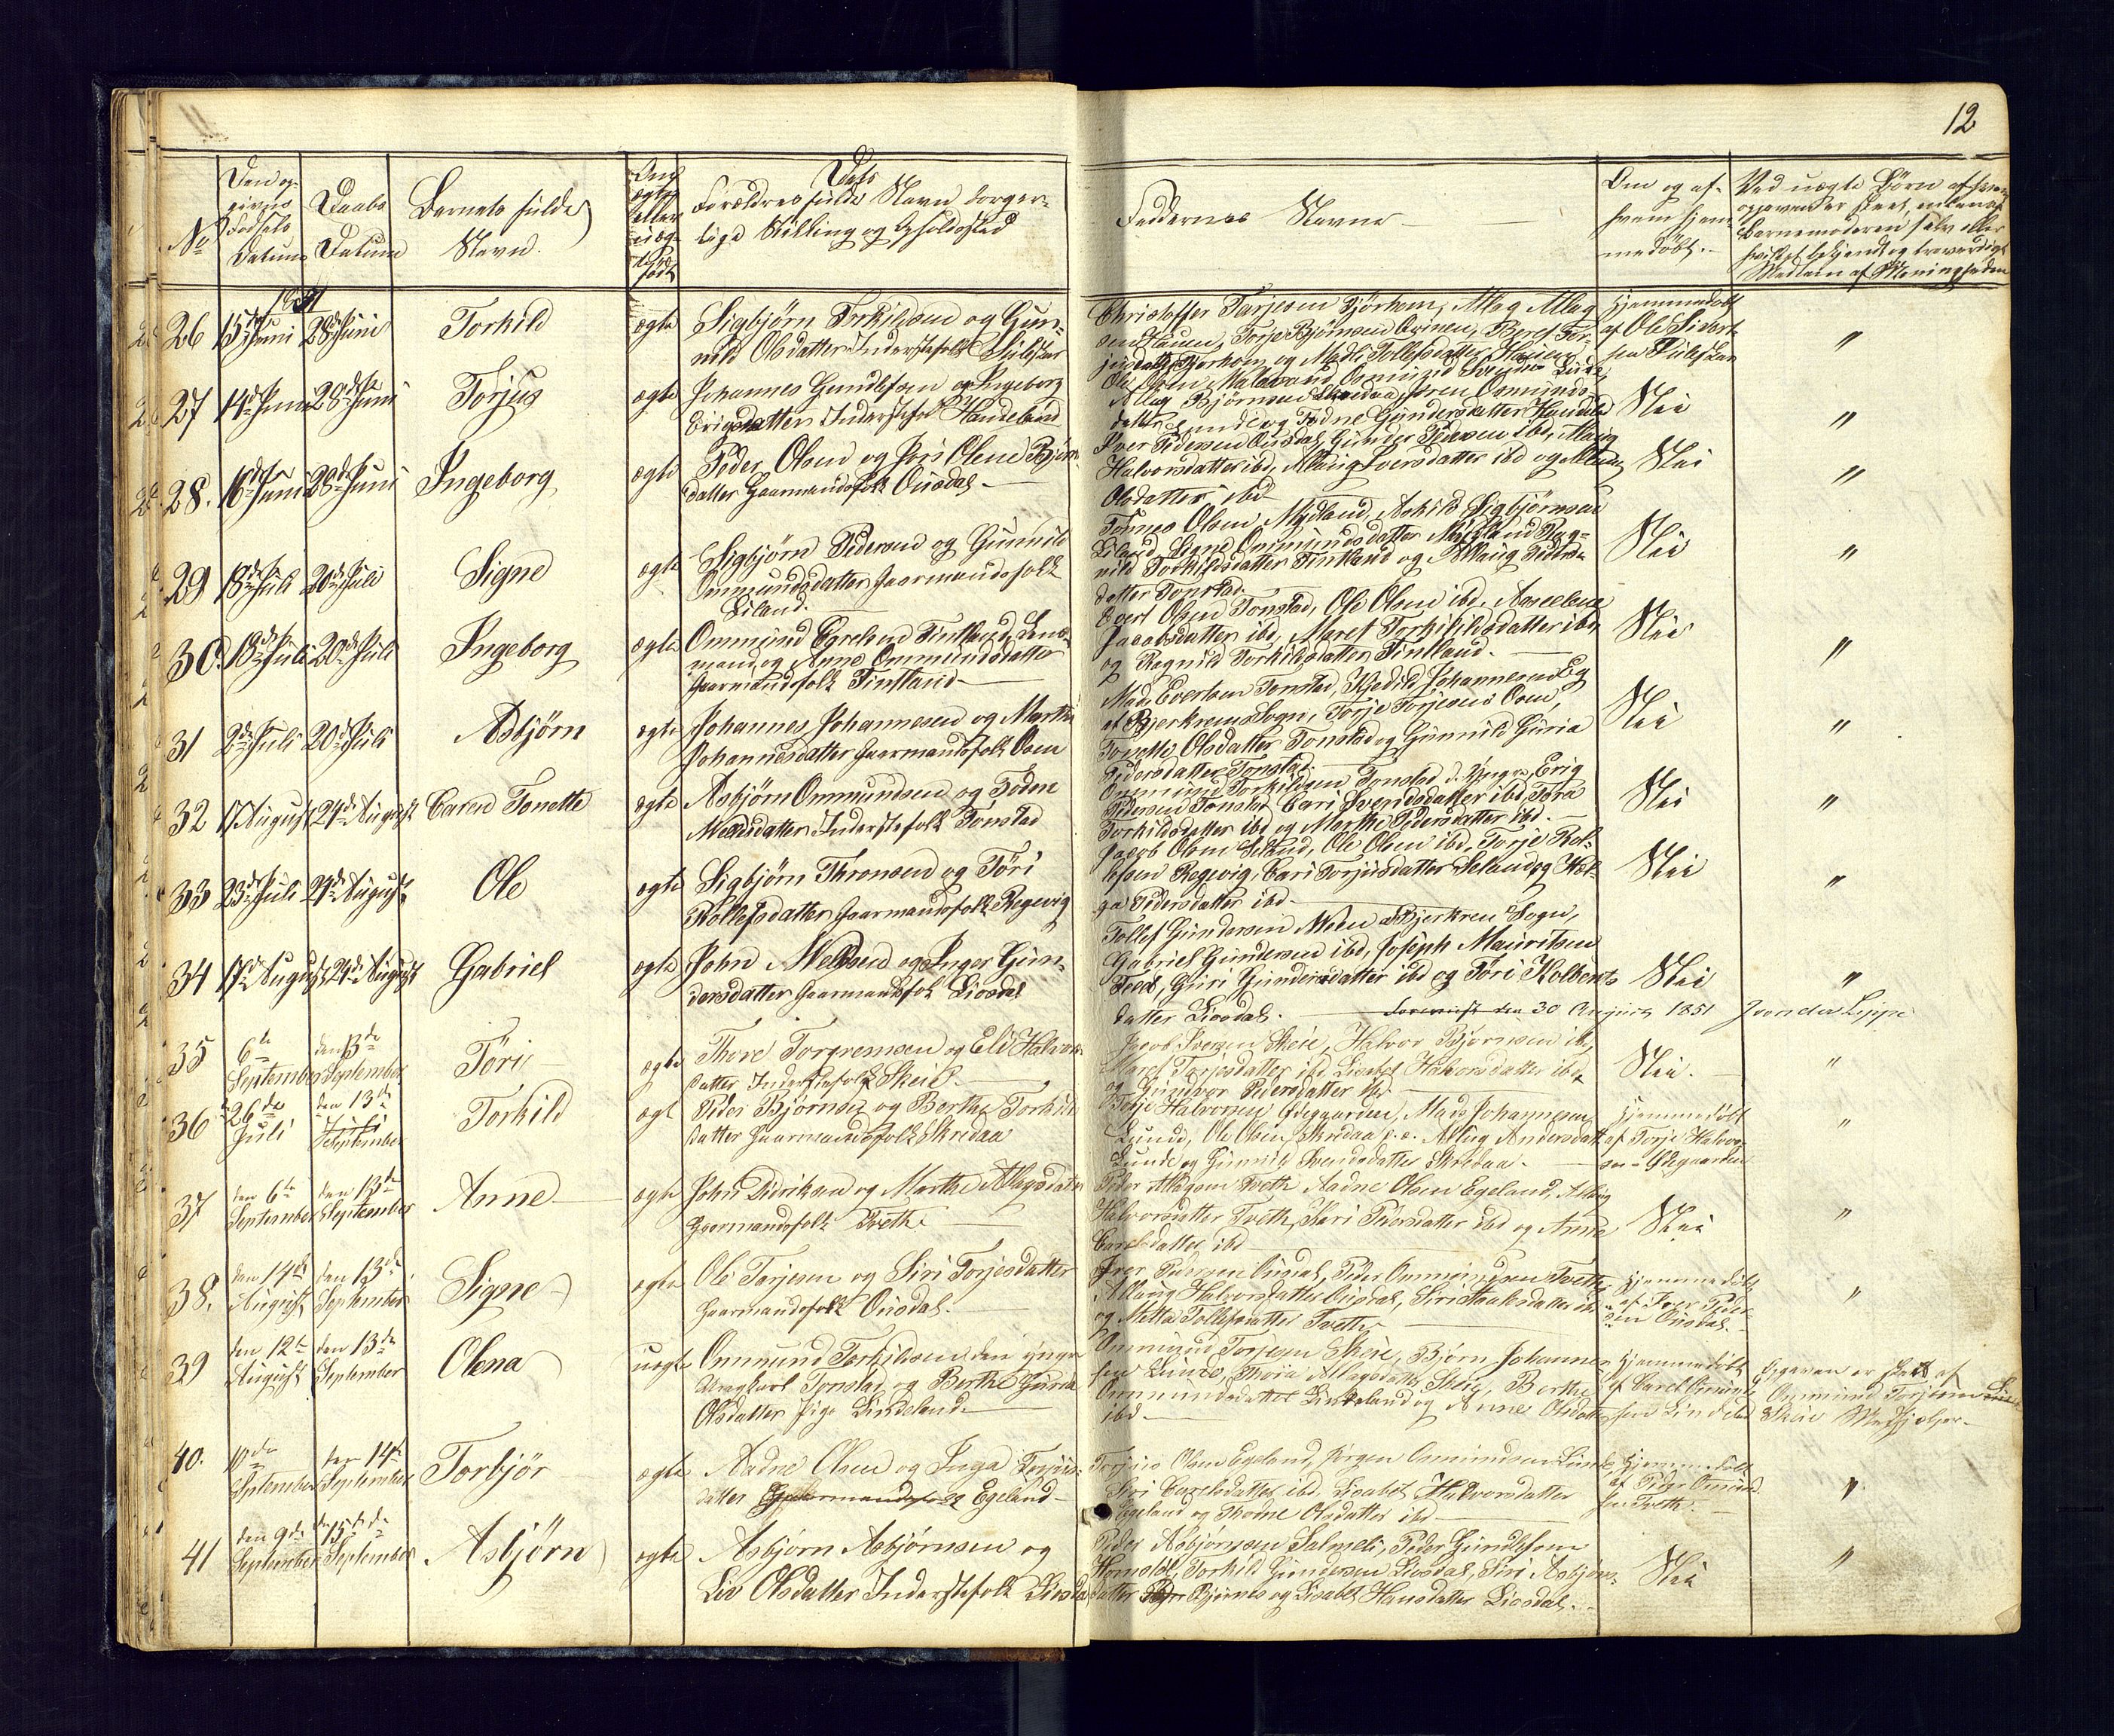 12
No
Den opgivne Fødsels Datum
Daabs Datum
Barnets fulde Navn.
Om ægte eller uægte født
Dets Forældres fulde Navn borgerlige Stilling og Opholdssted
Faddernes Navne
Om og af hvem hjemmedøbt.
Ved uægte Børn af hvem opgaven er skeet, enten af Barnemoderen selv eller hvilket bekjendt og troværdigt Medlem af Menigheden
1851
26 15de Juni 28de Juni Torkild ægte
Sigbjørn Torkildsen og Gunnild Olsdatter Inderstefolk
Christoffer Tarjesen Bjørhom, Atlag Atlagsen Hauen, Torje Bjørnsen Avinen, Beret Torjusdatter Bjørhom og Tollefsdatter Hauen
Hjemmedøbt af Ole Sivertsen
"
27 14de Juni 28de Juni Torjus ægte
Johannes Gundlefsen og Ingeborg Erigsdatter Inderstefolk Haudeland
Ole Olsen Malevand, Osmund Svendsen Lunde, Atlag Bjørnsen Skredaa, Siren Osmundsdatter Lunde og Todne Gundersdatter
Nei
"
28. 16de Juni 28de Juni Ingeborg ægte
Peder Olsen og Siri Olene Bjørnsdatter Gaarmandsfolk Ousdal
Iver Pedersen Ousdal, Gunder Pedersen ibd, Atlaug Halvorsdatter ibd, Atlaug Iversdatter ibd og Olsdatter ibd
Nei
"
29 18de Juli 20de Juli Signe ægte
Sigbjørn Pedersen og Gunnild Ommundsdatter Gaarmandsfolk Eiland.
Tønnes Olsen Mydland, Askild Sigbjørnsen Eiland, Signe Ommundsdatter Mydland Ragnild Torkildsdatter Fintland og Atlaug Pedersdatter Tonstad
Nei
"
30. 18de Juli 20de Juli Ingeborg ægte
Ommund Egrelsen Fintland, Lensmand og Anne Ommundsdatter Gaarmandsfolk Fintland
Evert Olsen Tonstad, Ole Olsen ibd, Aaseelene Jacobsdatter ibd, Maret Torkildsdatter ibd og Ragnild Torkildsdatter Fintland.
Nei
"
31 2de Juli 20de Juli Asbjørn ægte
Johannes Johannesen og Marthe Johannesdatter Gaarmandsfolk Osen
Mads Evertsen Tonstad, Kjedild Johannesen Eig af Bjerkrems Sogn, Torje Torjesen Osen, Tonette Olsdatter Tonstad og Gunnild Guria Pedersdatter Tonstad.
Nei
"
32 17 August 24de August Caren Tonette ægte
Asbjørn Ommundsen og Todne Mellsdatter Inderstefolk Tonstad
Ommund Torkildsen Tonstad d. Yngre, Erig Pedersen Tonstad, Cari Svendsdatter ibd Tora Torkildsdatter ibd og Marthe Pedersdatter ibd.
Nei
"
33 23de Juli 24de August Ole ægte
Sigbjørn Thronsen og Tori Rollefsdatter Gaarmandsfolk Regevig
Jacob Olsen Selund, Ole Olsen ibd, Torje Rollefsen Regevig, Cari Torjusdatter Selund og Helga Pedersdatter ibd
Nei
"
34 17de August 24de August Gabriel ægte
John Mellsen og Inger Gundersdatter Gaarmandsfolk Liosdal
Tollef Gundersen Meen af Bjerkrem Sogn, Gabriel Gundersen ibd, Joseph Mauritsen, Guri Gundersdatter ibd og Tori Kolbensdatter Liosdal.
Nei
"
30 August 1851
35 6te September den 13de September Tori ægte
Thore Torgremsen og Eli Halvorsdatter Inderstefolk Skeie.
Jacob Iversen Skeie, Halvor Bjørnsen ibd, Maret Torjesdatter ibd Lisabet Halvorsdatter ibd og Gundvor Pedersdatter ibd.
Nei.
"
36 26de Juli den 13de September Torkild ægt
Peder Bjørnsen og Berthe Torkildsdatter Gaarmandsfolk Skredaa
Torje Halvorsen Ødegaarden, Mads Johannesen Lunde, Ole Olsen Skredaa, Atlaug Andersdatter Lunde og Gunnild Svendsdatter Skredaa.
Hjemmedøbt af Torje Halvorsen Ødegaarden
"
37 den 6te September den 13de September Anne ægte
John Didriksen og Marthe Atlagsdatter Gaarmandsfolk Tveth.
Peder Atlagsen Tveth Aadne Olsen Egeland, Atlaug Halvorsdatter Tveth, Kari Pedersdatter ibd og Anne Carelsdatter ibd
Nei
"
38. den 14de August den 13de September Signe ægte
Ole Torjesen og Siri Torjesdatter Gaarmandsfolk Ousdal.
Iver Pedersen Ousdal, Peder Ommundsen Tveth, Atlaug Halvorsdatter Ousdal, Siri datter ibd og Mette Tollefsdatter Tveth
Hjemmedøbt af Iver Pedersen Ousdal.
"
39 den 12te August den 13de September Olena uægte
Ommund Torkildsen den yngre Ungkarl Tonstad og Berthe Guria Olsdatter Pige Lindeland.
Ommund Torjesen Skeie, Bjørn Johannessen Lunde, Thoia Atlagsdatter Skeie, Berthe Ommundsdatter Lindeland og Anne Olsdatter ibd
Hjemmedøbt af Carel Omundsen Lindeland
Opgaven er skeet af Ommund Torjesen Skeie Medhjelper.
40. 10de September den 14de September Torbjør ægte
Aadne Olsen og Inga Torjusdatter Gaarmandsfolk Egeland
Torjus Olsen Egeland, Jørgen Ommundsen Lunde, Siri Carelsdatter ibd Lisabet Halvorsdatter Egeland og Thodne Olsdatter ibd
Hjemmedøbt af Peder Omundsen Tveth.
"
41 den 9de September den 15de September Asbjørn ægte
Asbjørn Asbjørnsen og Liv Olsdatter Inderstefolk Liosdal
Peder Asbjørnsen Salmeli, Peder Gundlefsen, Torkild Gundersen Liosdal, Siri Asbjørnsdatter Bjørnes og Lisabet Hansdatter Liosdal.
Nei
"